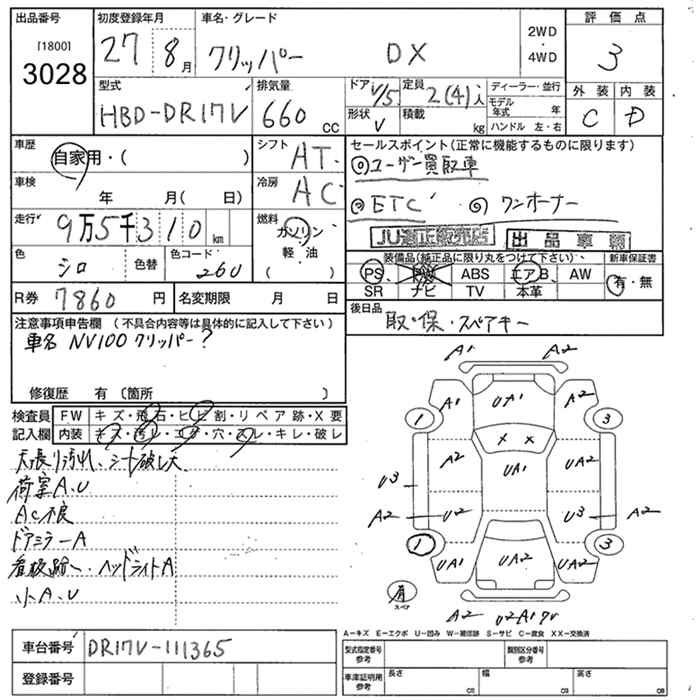 出品番号
[1800]
3028
初度登録年月
27 8月
車名・グレード
クリッパー DX
2WD
・
4WD
評価点
3
外装 内装
C D
型式
HBD-DR17V
排気量
660 CC
ドア 1/5
形状 V
定員 2(4)
積載 kg
ディーラー・並行
モデル年式 年
ハンドル 左・右
車歴
自家用・( )
シフト
AT
車検
年 月( 日)
冷房
AC
走行
9万5千310 km
燃料
ガソリン
軽・油
( )
色
シロ
色替
色コード
26U
R券 7860 円
名変期限 月 日
セールスポイント(正常に機能するものに限ります)
◎ユーザー買取車
◎ETC ◎ワンオーナー
JU適正販売店 出品車輌
装備品(純正品に限り丸をつけて下さい)
新車保証書
PS PW ABS エアB AW
SR ナビ TV 本革
有・無
後日品
取・保・スペアキー
注意事項申告欄 (不具合内容等は具体的に記入して下さい)
車名 NV100 クリッパー?
修復歴 有 (箇所 )
検査員記入欄
FW キズ・飛石・ヒビ割・リペア跡・X要
内装 キズ・汚れ・コゲ・穴・スレ・キレ・破レ
天張り汚れ、シート破し大
荷室A、U
AC不良
ドアミラーA
看板跡 ヘッドライトA
小A、U
A1 A2
A1 UA1 A2
1 3
A2 UA1 UA2
U3
A2 U2 U3 A2
1 3
UA1 UA2 UA2
有
スペア
A2 U2A1
A－キズ E－エクボ U－凹み W－補修跡 S－サビ C－腐食 XX－交換済
車台番号 DR17V-111365
登録番号
型式指定番号参考
類別区分番号参考
車庫証明用参考
長さ cm 幅 cm 高さ cm